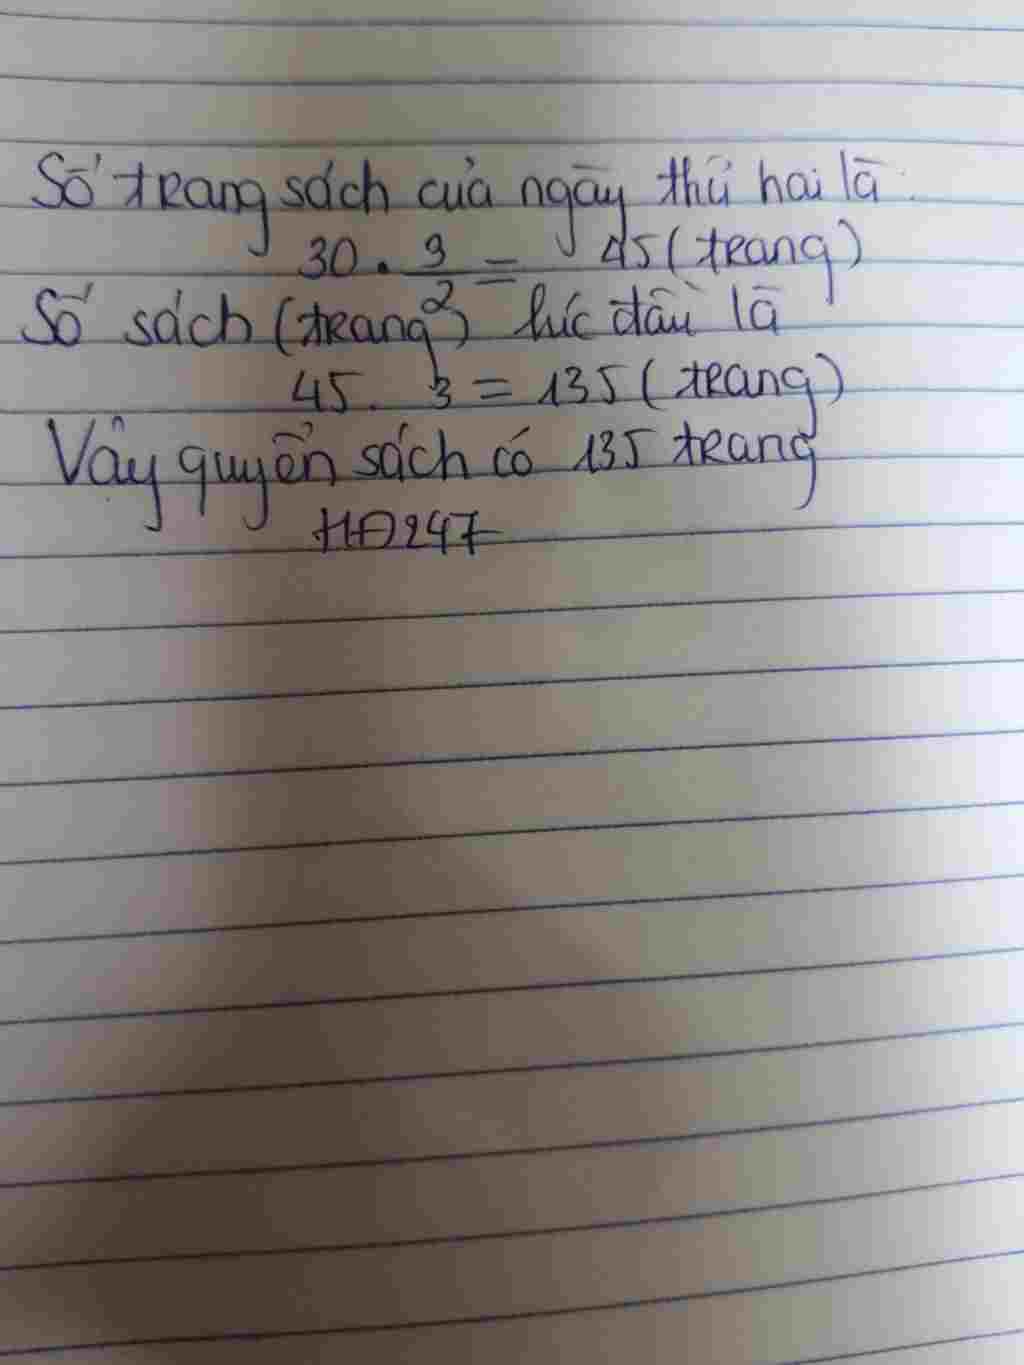 Số trang sách của ngày thứ hai là:
30 . 3/2 = 45 (trang)
Số sách (trang) lúc đầu là
45 . 3 = 135 (trang)
Vậy quyển sách có 135 trang
HĐ247